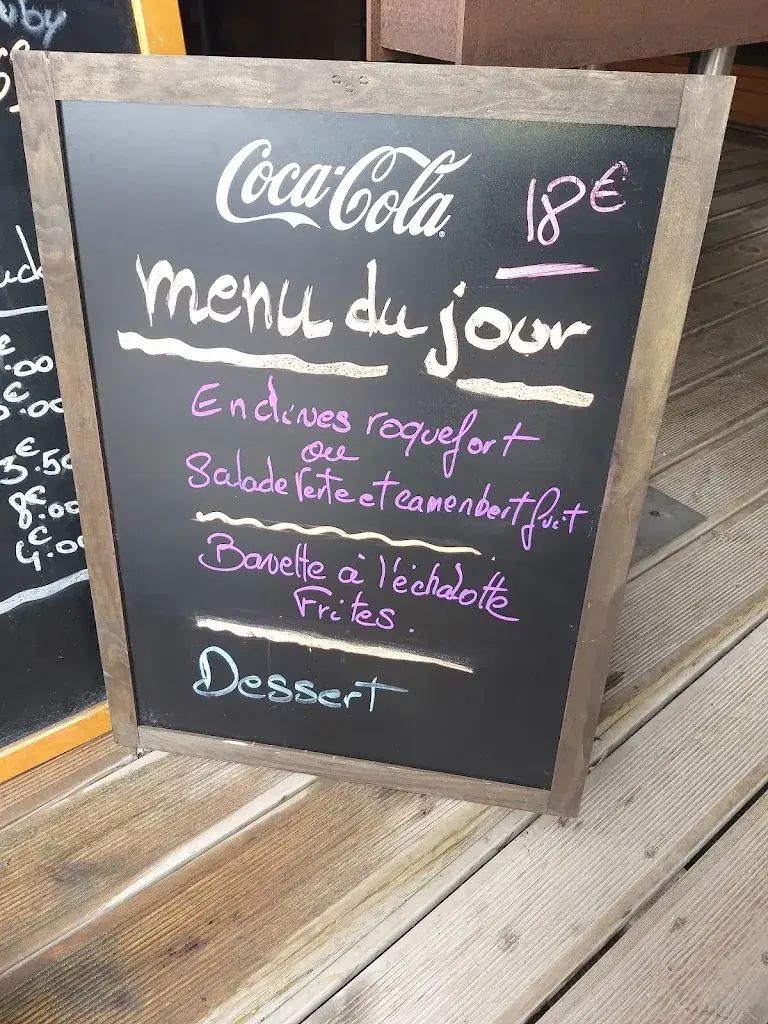 Coca-Cola
18€
menu du jour
Endives roquefort
ou
Salade Verte et camembert fruit
Bavette à l'échalotte
Frites.
Dessert
3.50
8€.00